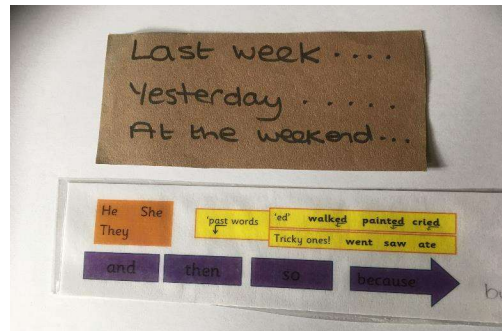 Last week....
Yesterday .....
At the weekend...
He She
They
'past words
'ed' walked painted cried
Tricky ones! went saw ate
and then so because